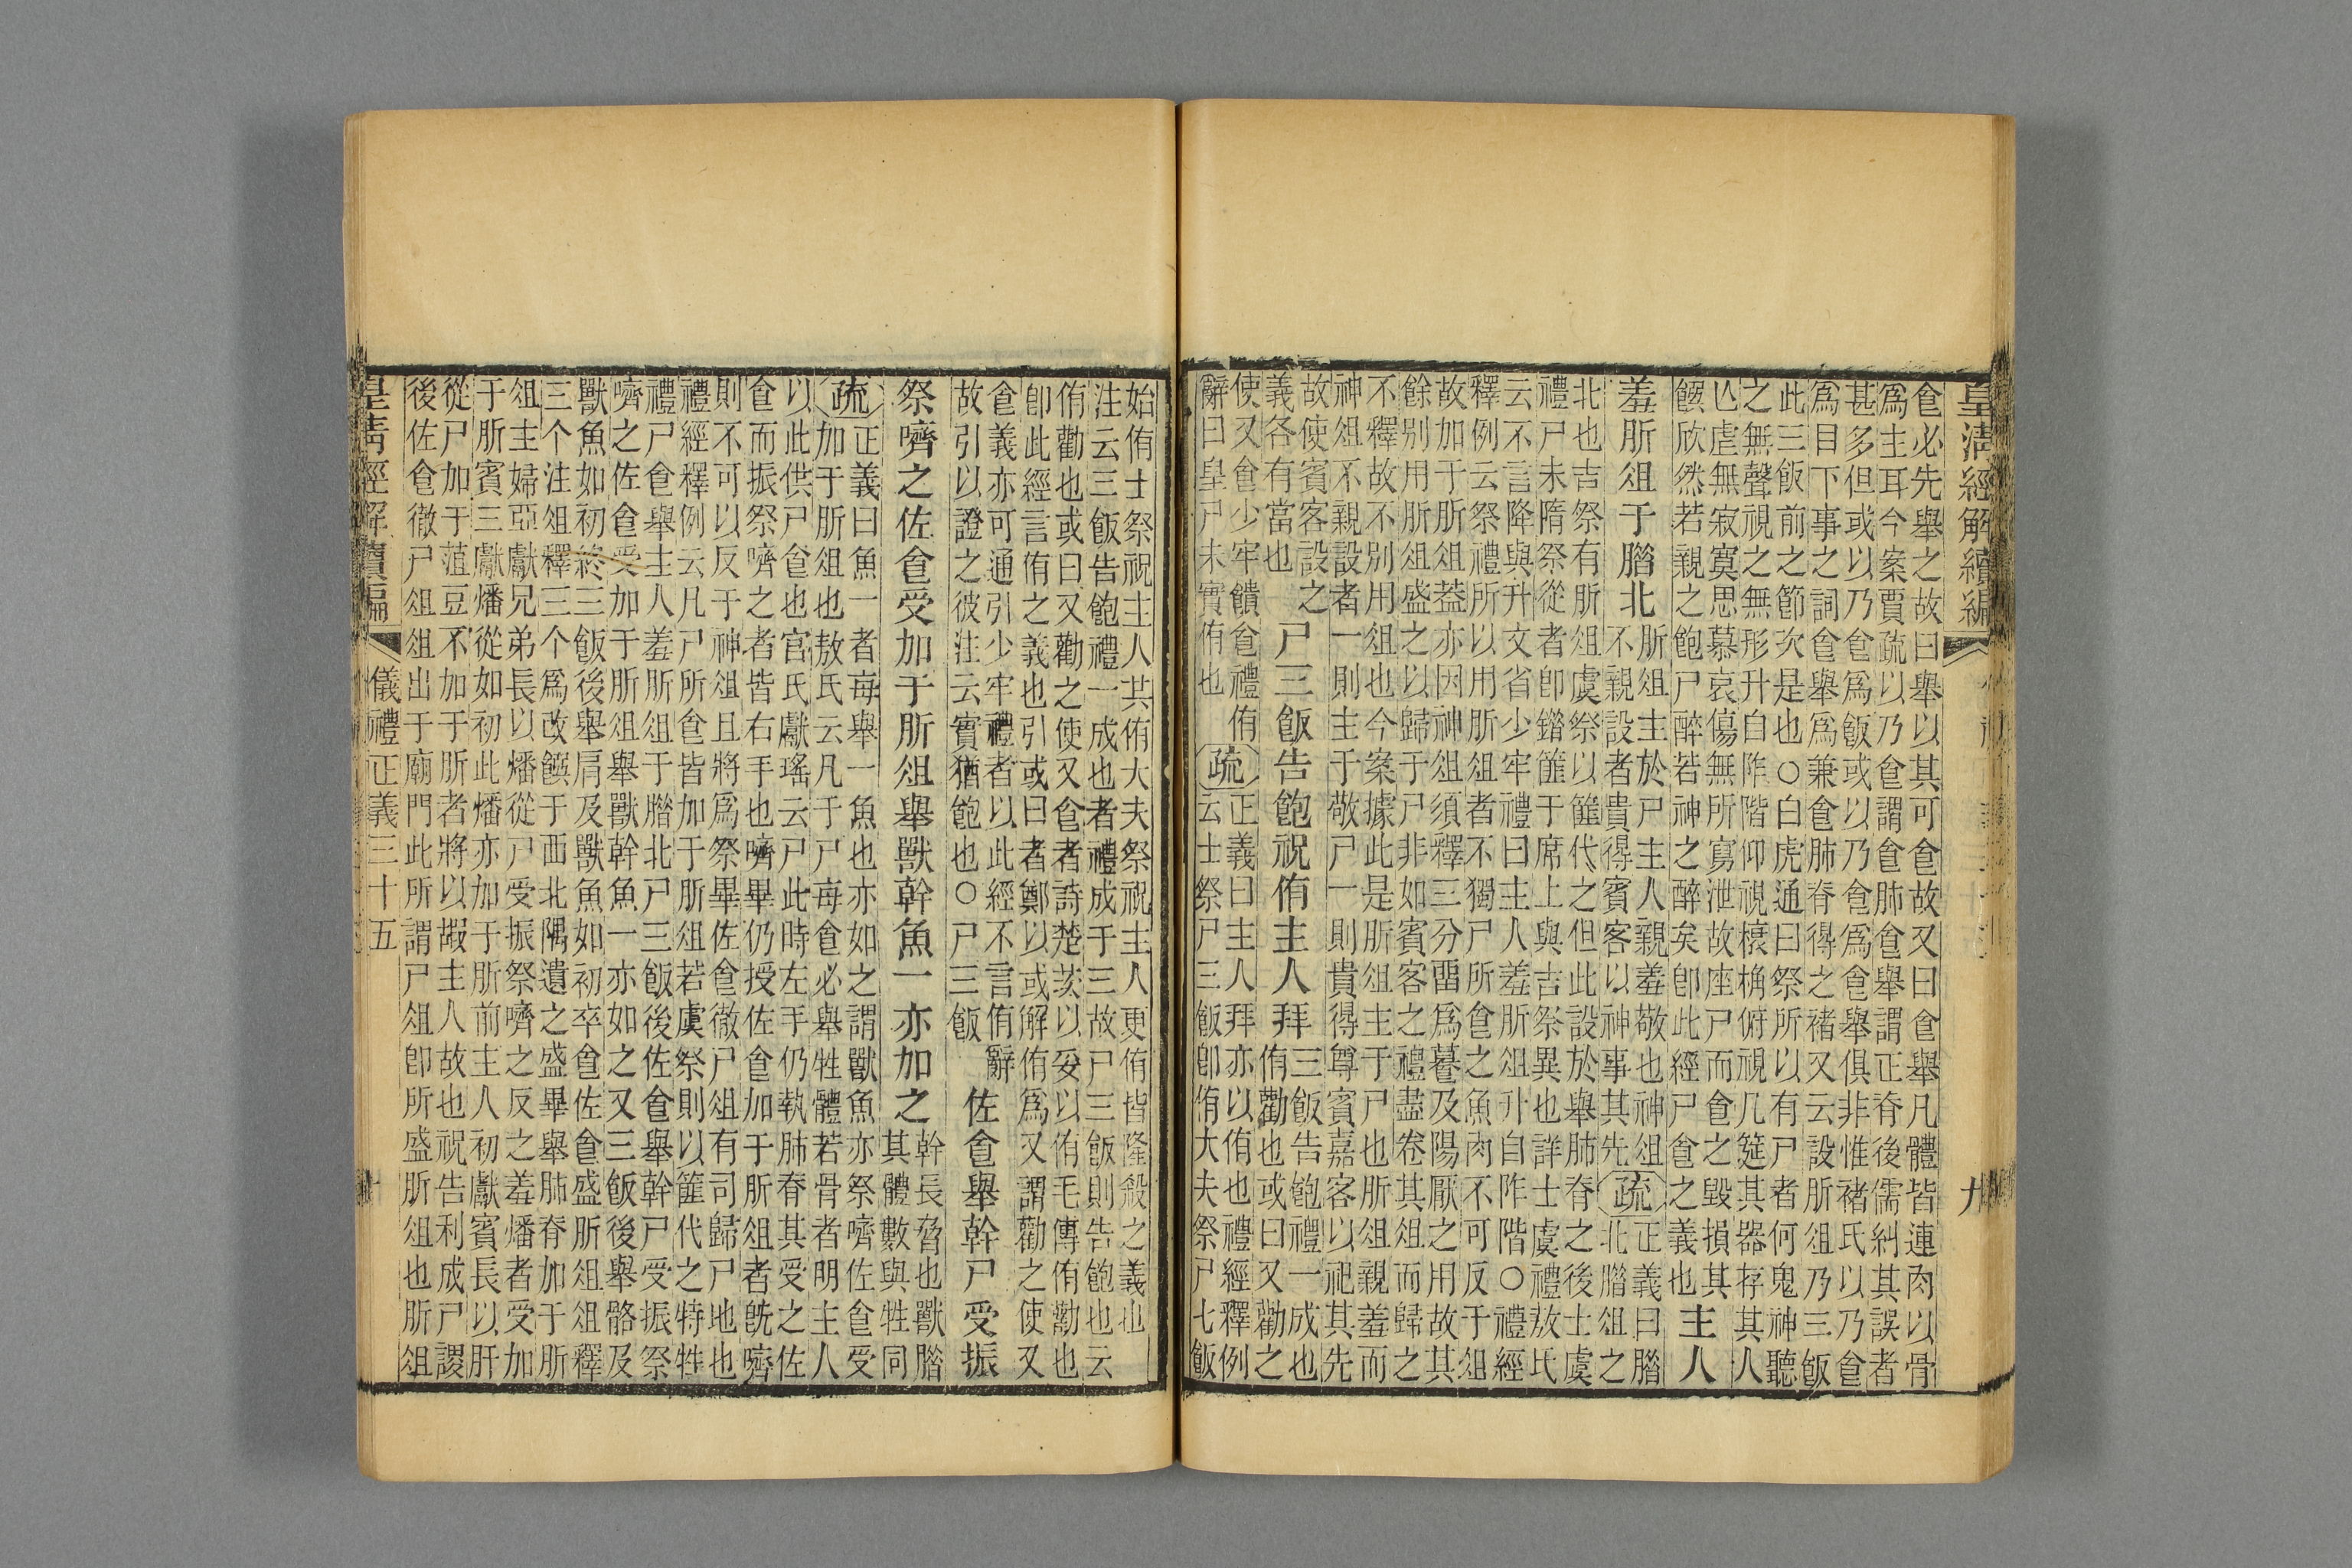 皇清經解續編
九
食必先舉之故曰舉以其可食故又曰食舉凡體皆連肉以骨
爲主耳今案賈疏以乃食謂食肺食舉謂正脊後儒糾其誤者
甚多但或以乃食爲飯或以乃食爲食舉俱非惟褚氏以乃食
爲目下事之詞食舉爲兼食肺脊得之褚又云設肵俎乃三飯
此三飯前之節次是也○白虎通曰祭所以有尸者何鬼神聽
之無聲視之無形升自阼階仰視榱桷俯視几筵其器存其人
亡虚無寂寞思慕哀傷無所寫泄故座尸而食之毀損其
饌欣然若親之飽尸醉若神之醉矣卽此經尸食之義也
主人
羞肵俎于腊北
肵俎主於尸主人親羞敬也神俎
不親設者貴得賓客以神事其先
疏
正義曰腊
北腊俎之
北也吉祭有肵俎虞祭以篚代之但此設於舉肺脊之後士虞
禮尸未隋祭從者卽錯篚于席上與吉祭異也詳士虞禮敖氏
云不言降與升文省少牢禮曰主人羞肵俎升自阼階○禮經
釋例云祭禮所以用肵俎者不獨尸所食之魚肉不可反于俎
故加于肵俎蓋亦因神俎須釋三分畱爲養及陽厭之用故其
餘别用肵俎盛之以歸于尸非如賓客之禮盡卷其俎而歸之
不釋故不别用俎也今案據此是肵俎主于尸也肵俎親羞而
神俎不親設者一則主于敬尸一則貴得尊賓嘉客以祀其先
故使賓客設之
義各有當也
尸三飯告飽祝侑主人拜
三飯告飽禮一成也
侑勸也或曰又勸之
使又食少牢饋食禮侑
辭曰皇尸未實侑也
疏
正義曰主人拜亦以侑也禮經釋例
云士祭尸三飯卽侑大夫祭尸七飯
始侑士祭祝主人共侑大夫祭祝主人更侑皆隆殺之義也
注云三飯告飽禮一成也者禮成于三故尸三飯則告飽也云
侑勸也或曰又勸之使又食者詩楚茨以妥以侑毛傳侑勸也
卽此經言侑之義也引或曰者鄭以或解侑爲又謂勸之使又
食義亦可通引少牢禮者以此經不言侑辭
故引以證之彼注云實猶飽也○尸三飯
佐食舉幹尸受振
祭嚌之佐食受加于肵俎舉獸幹魚一亦加之
幹長脅也獸腊
其體數與牲同
疏
正義曰魚一者每舉一魚也亦如之謂獸魚亦祭嚌佐食受
加于肵俎也敖氏云凡于尸每食必舉牲體若骨者明主人
以此供尸食也官氏獻瑤云尸此時左手仍執肺脊其受之佐
食而振祭嚌之者皆右手也嚌畢仍授佐食加于肵俎者旣嚌
則不可以反于神俎且將爲祭畢佐食徹尸俎有司歸尸地也
禮經釋例云凡尸所食皆加于肵俎若虞祭則以篚代之特牲
禮尸食舉主人羞肵俎于腊北尸三飯後佐食舉幹尸受振祭
嚌之佐食受加于肵俎舉獸幹魚一亦如之又三飯後舉骼及
獸魚如初終三飯後舉肩及獸魚如初卒食佐食盛肵俎俎釋
三个注俎釋三个爲改饌于西北隅遺之盛畢舉肺脊加于肵
俎主婦亞獻兄弟長以燔從尸受振祭嚌之反之羞燔者受加
于肵賓三獻燔從如初此燔亦加于肵前主人初獻賓長以肝
從尸加于菹豆不加于肵者將以嘏主人故也祝告利成尸謖
後佐食徹尸俎俎出于廟門此所謂尸俎卽所盛肵俎也肵俎
皇清經解續編
儀禮正義三十五